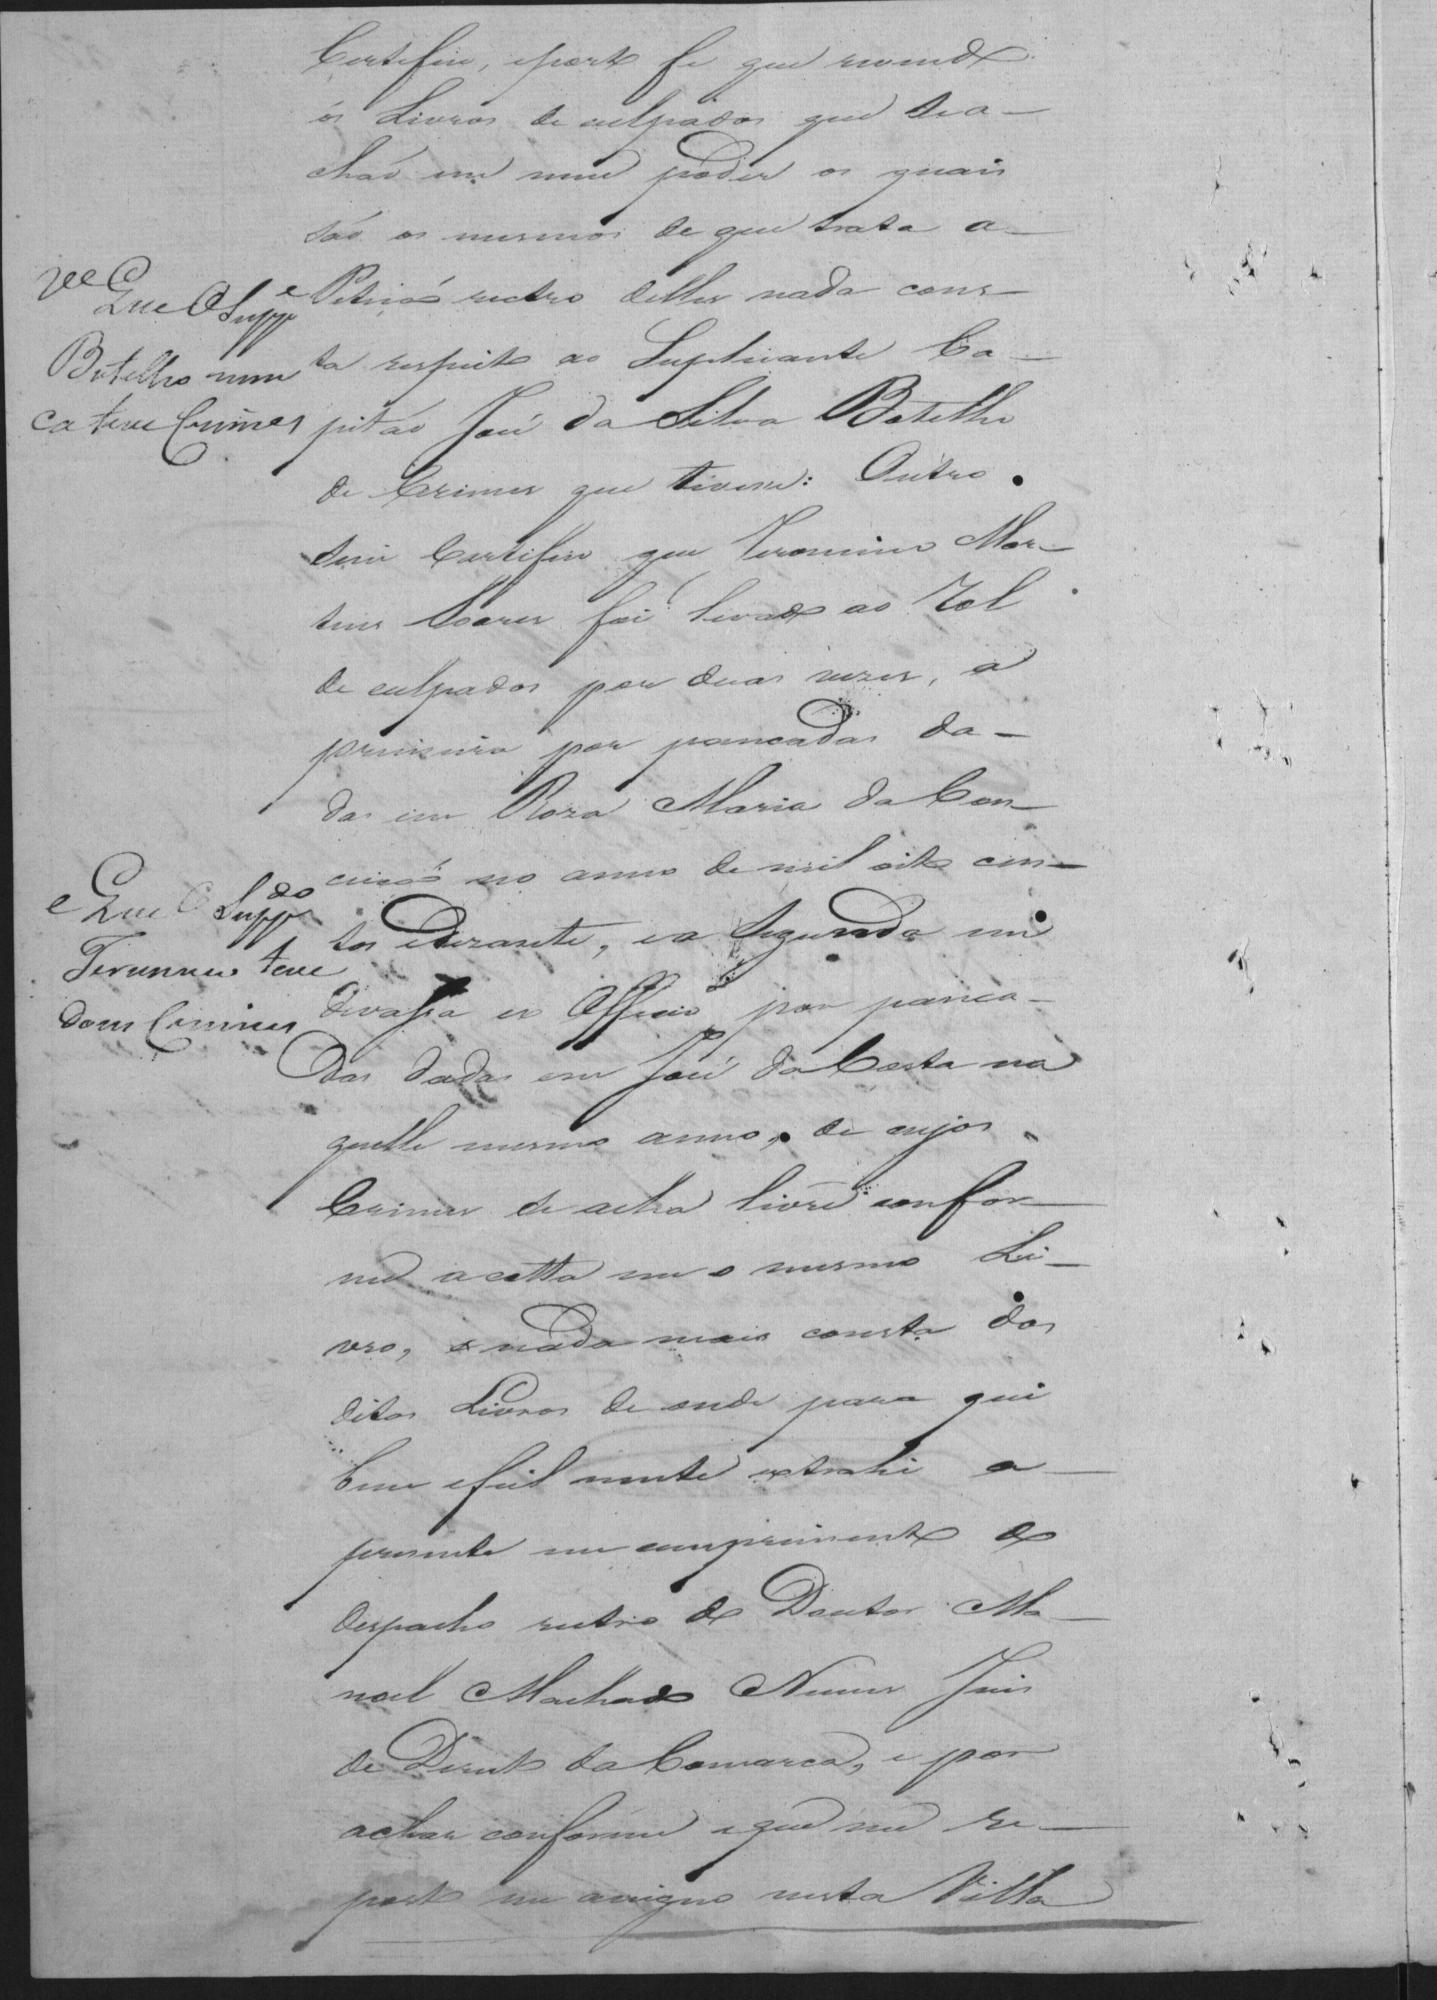 Certifico, eporto fe que revendo
os Livros de culpados que se a-
chaõ em meu poder os quais
saõ os mesmos de que trata a-
Petiçaõ rectro delles nada cons-
ta respeito ao Suplicante Ca-
pitaõ José da Silva Botelho
de Crimes que tivesse: Outro
sim Certifico que Jeronimo Mar-
tins Soares foi levado ao Rol
de culpados por duas vezes, a
primeira por pancadas da-
das em Roza Maria da Con-
ceiçaõ no anno de mil oito cen-
tos etrinta, ea Segunda em
devassa ex Officio por panca-
das dadas em José da Costa na
quelle mesmo anno, de cujos
Crimes se acha livre confor-
me a cotta em o mesmo Li-
vro, e nada mais consta dos
ditos Livros de onde para qui
bem efiel mente extrahi a-
presente em cumprimento do
despacho rectro do Doutor Ma-
noel Machado Nunes Juis
de Direito da Comarca, e por
achar conforme eque me re-
porto me assigno nesta Villa
Que O Supp.e
Botelho nun
ca teve Crimes
e Que O Supp.do
Jeronimo teve
dous Crimes